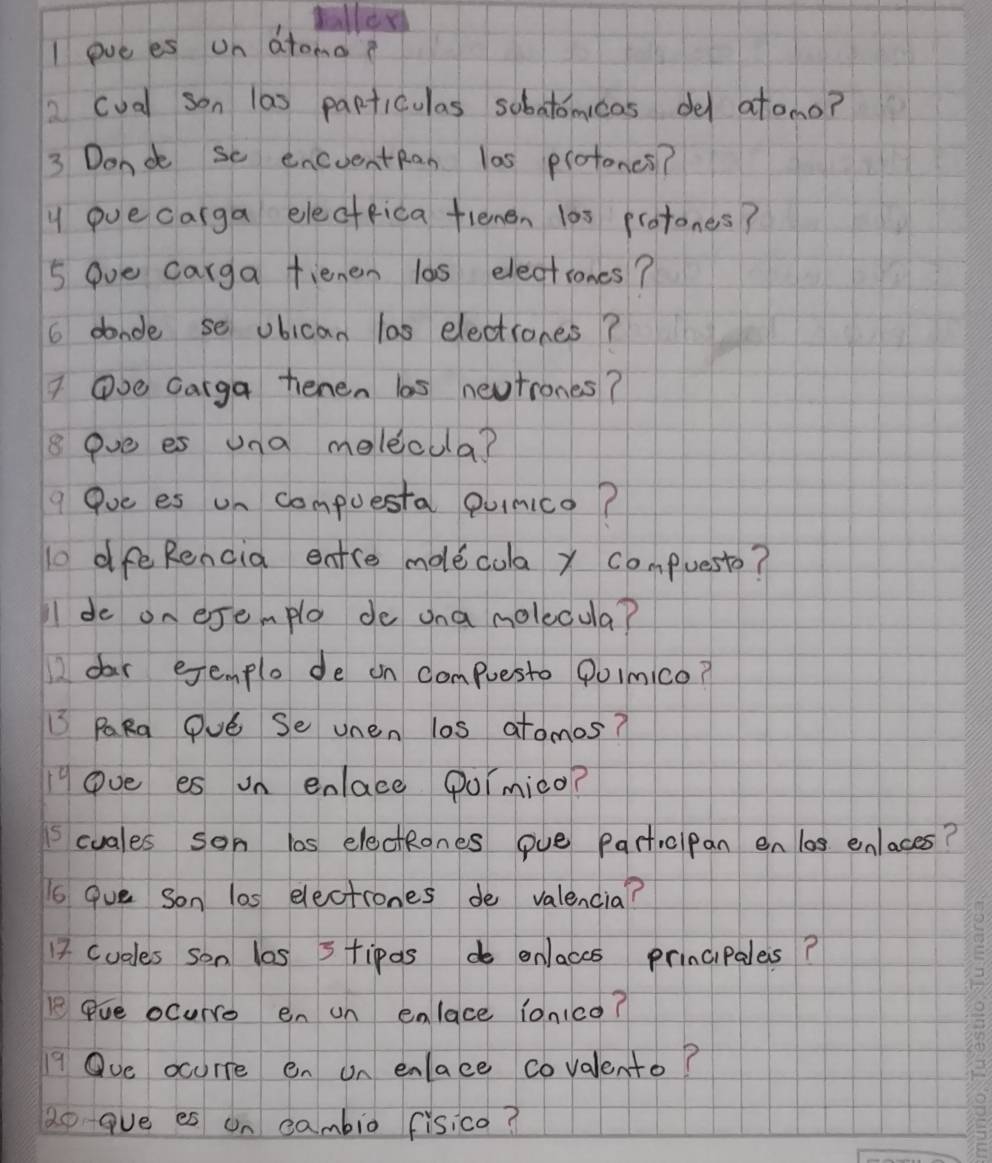 Taller
1 Que es un átomo?
2 Cual son las particulas subatómicas del atomo?
3 Donde se encuentran los protones?
4 que carga electrica tienen los protones?
5 Que carga tienen los electrones?
6 donde se ubican los electrones?
7 Que carga tienen los neutrones?
8 Que es una molécula?
9 Que es un compuesta Quimico?
10 dferencia entre molécula y compuesto?
11 de un ejemplo de una molecula?
12 dar ejemplo de un compuesto Quimico?
13 Para Qué se unen los atomos?
14 Que es un enlace Químico?
15 cuales son los electrones que participan en los enlaces?
16 Que son los electrones de valencia?
17 Cuales son los 3 tipos de enlaces principales?
18 Que ocurre en un enlace íonico?
19 Que ocurre en un enlace covalente?
20-que es un cambio físico?
mundo. Tu estilo. Tu marca.